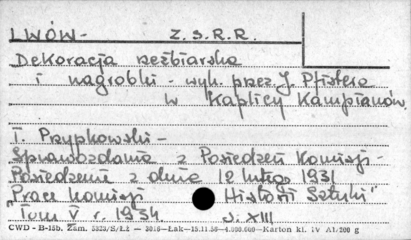 LWÓW- Z.S.R.R.
Dekoracja rzeźbiarska
i nagrobki - wyk. przez J. Pfistera
w Kaplicy Kampianów
T. Przypkowski -
Sprawozdania z Posiedzeń Komisji -
Posiedzenie z dnia 12 lutego 1931
"Prace Komisji Historii Sztuki"
Tom V r. 1934 s. XIII
CWD - B-15b. Zam. 5823/S/ŁŻ — 3016—Łak—15.11.50—4.000.000—Karton kl. IV A1/200 g